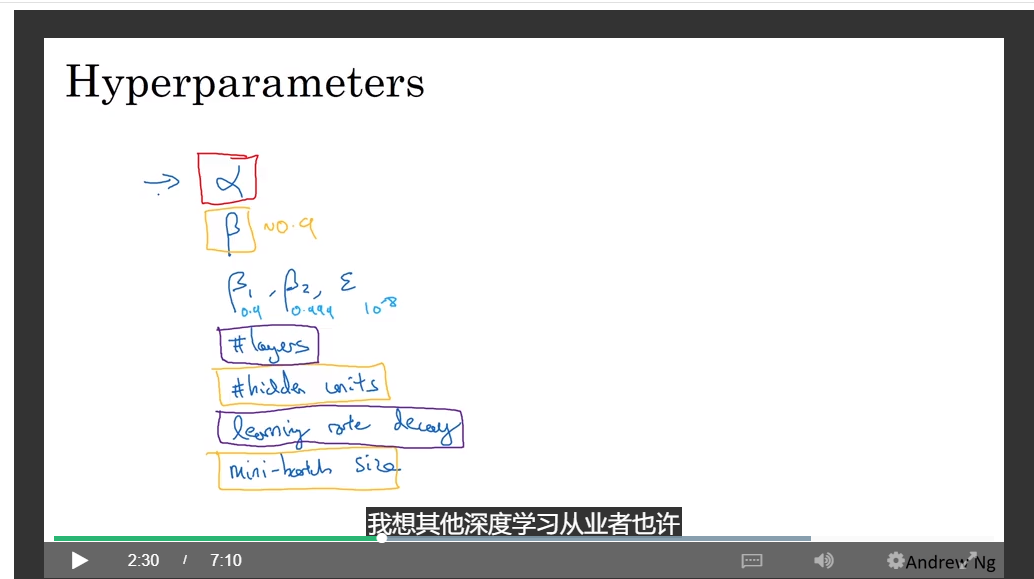 Hyperparameters
→ α
β ~0.9
β₁, β₂, ε
0.9 0.999 10⁻⁸
#layers
#hidden units
learning rate decay
mini-batch size
我想其他深度学习从业者也许
2:30 / 7:10
Andrew Ng